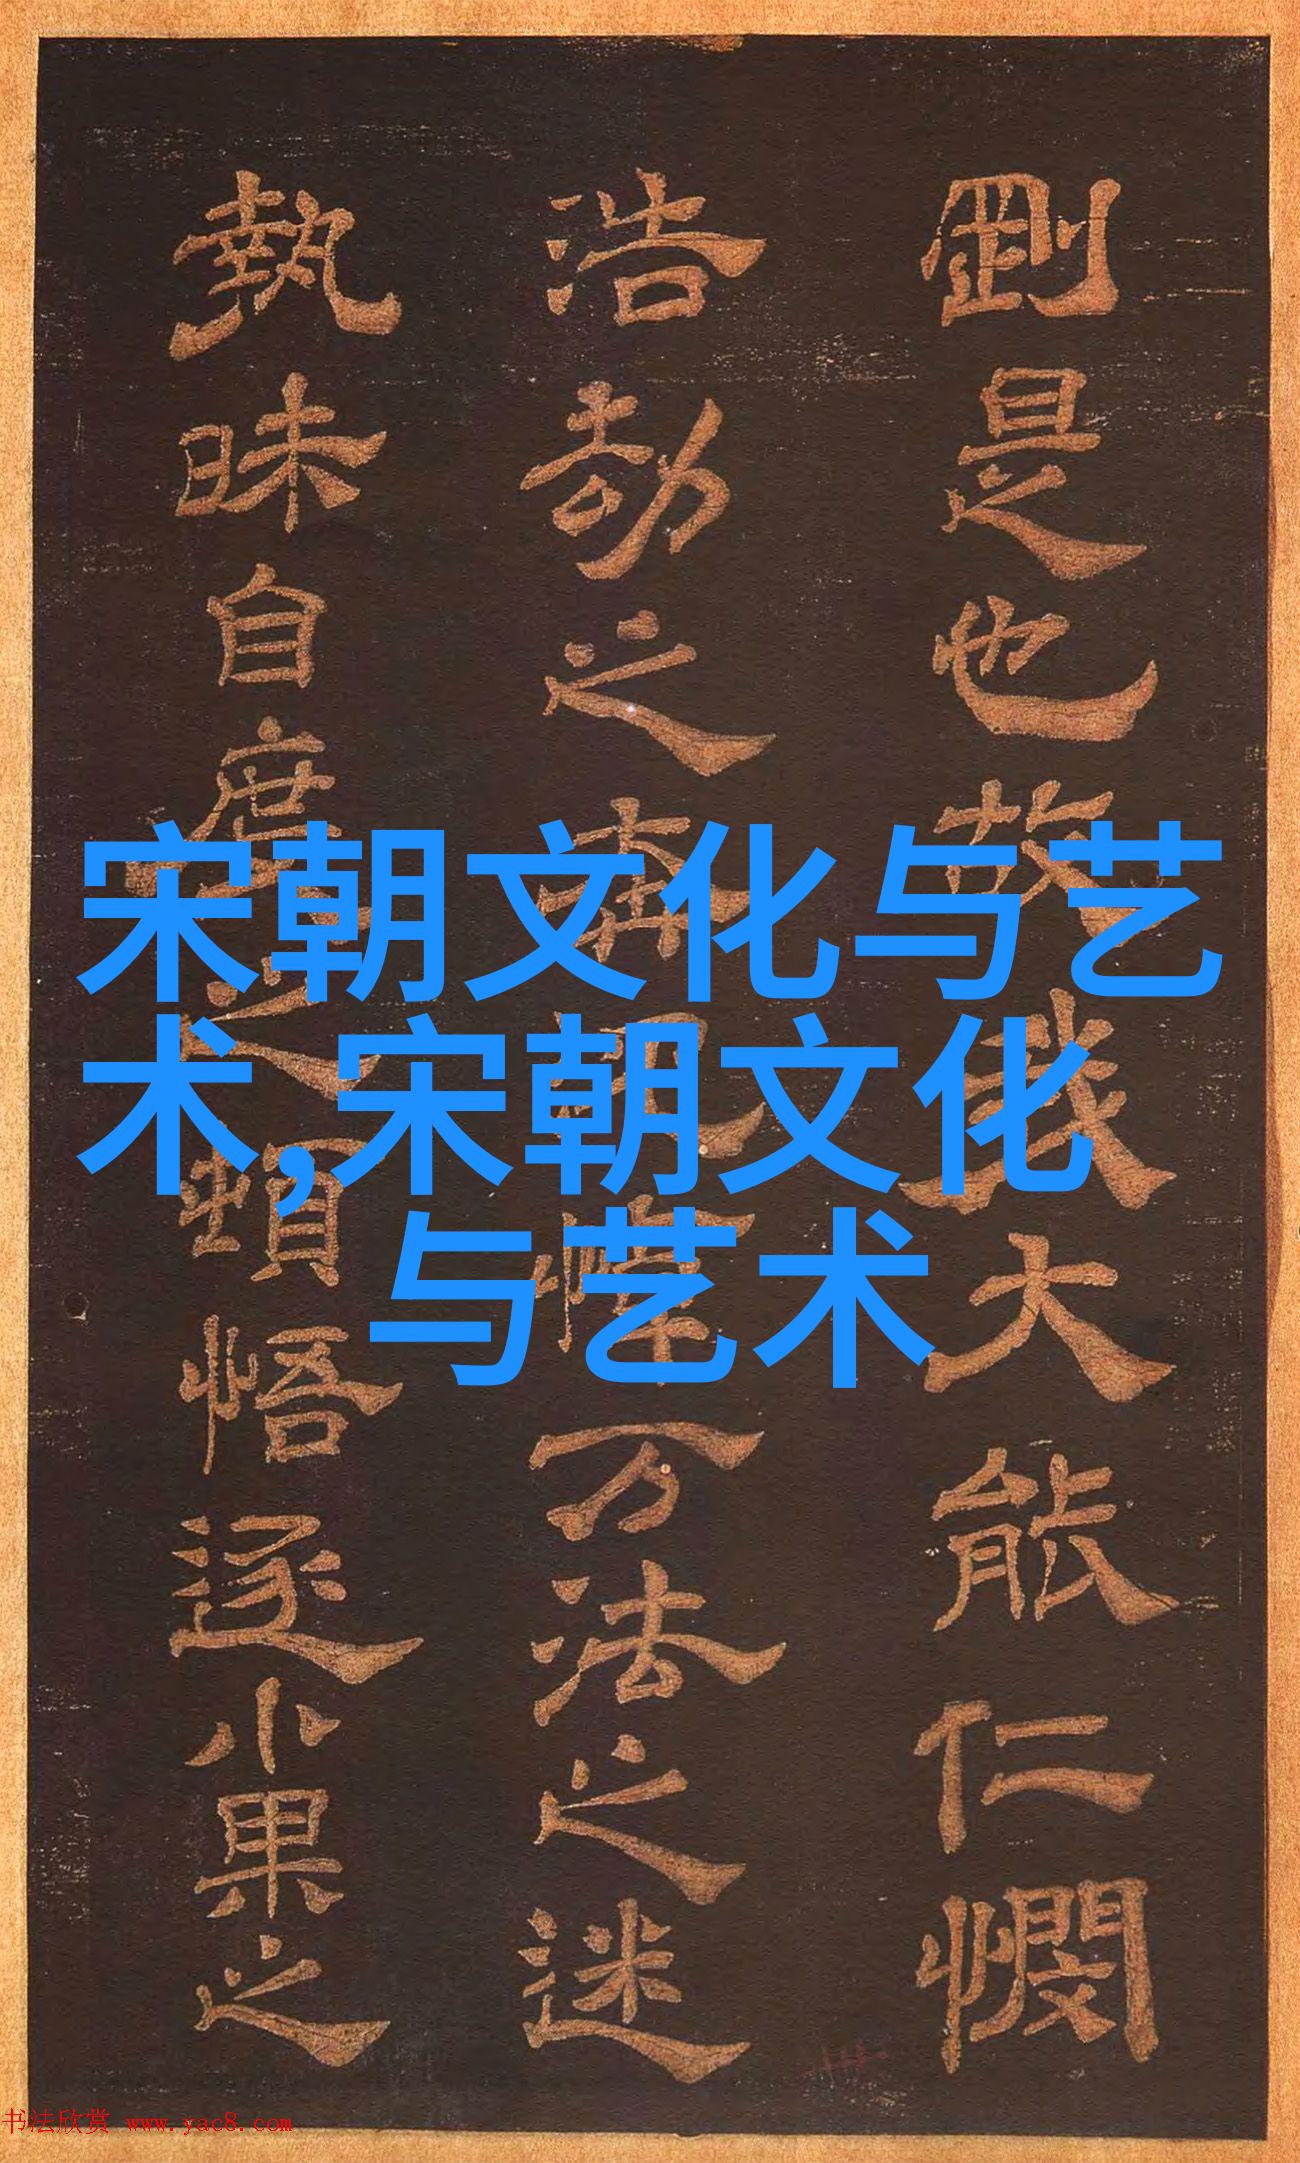 剛是也故我大能仁憫
浩劫之
万法之迷
執昧自度之頓悟逐小果之
宋朝文化与艺
术,宋朝文化
与艺术
书法欣赏 www.yac8.com